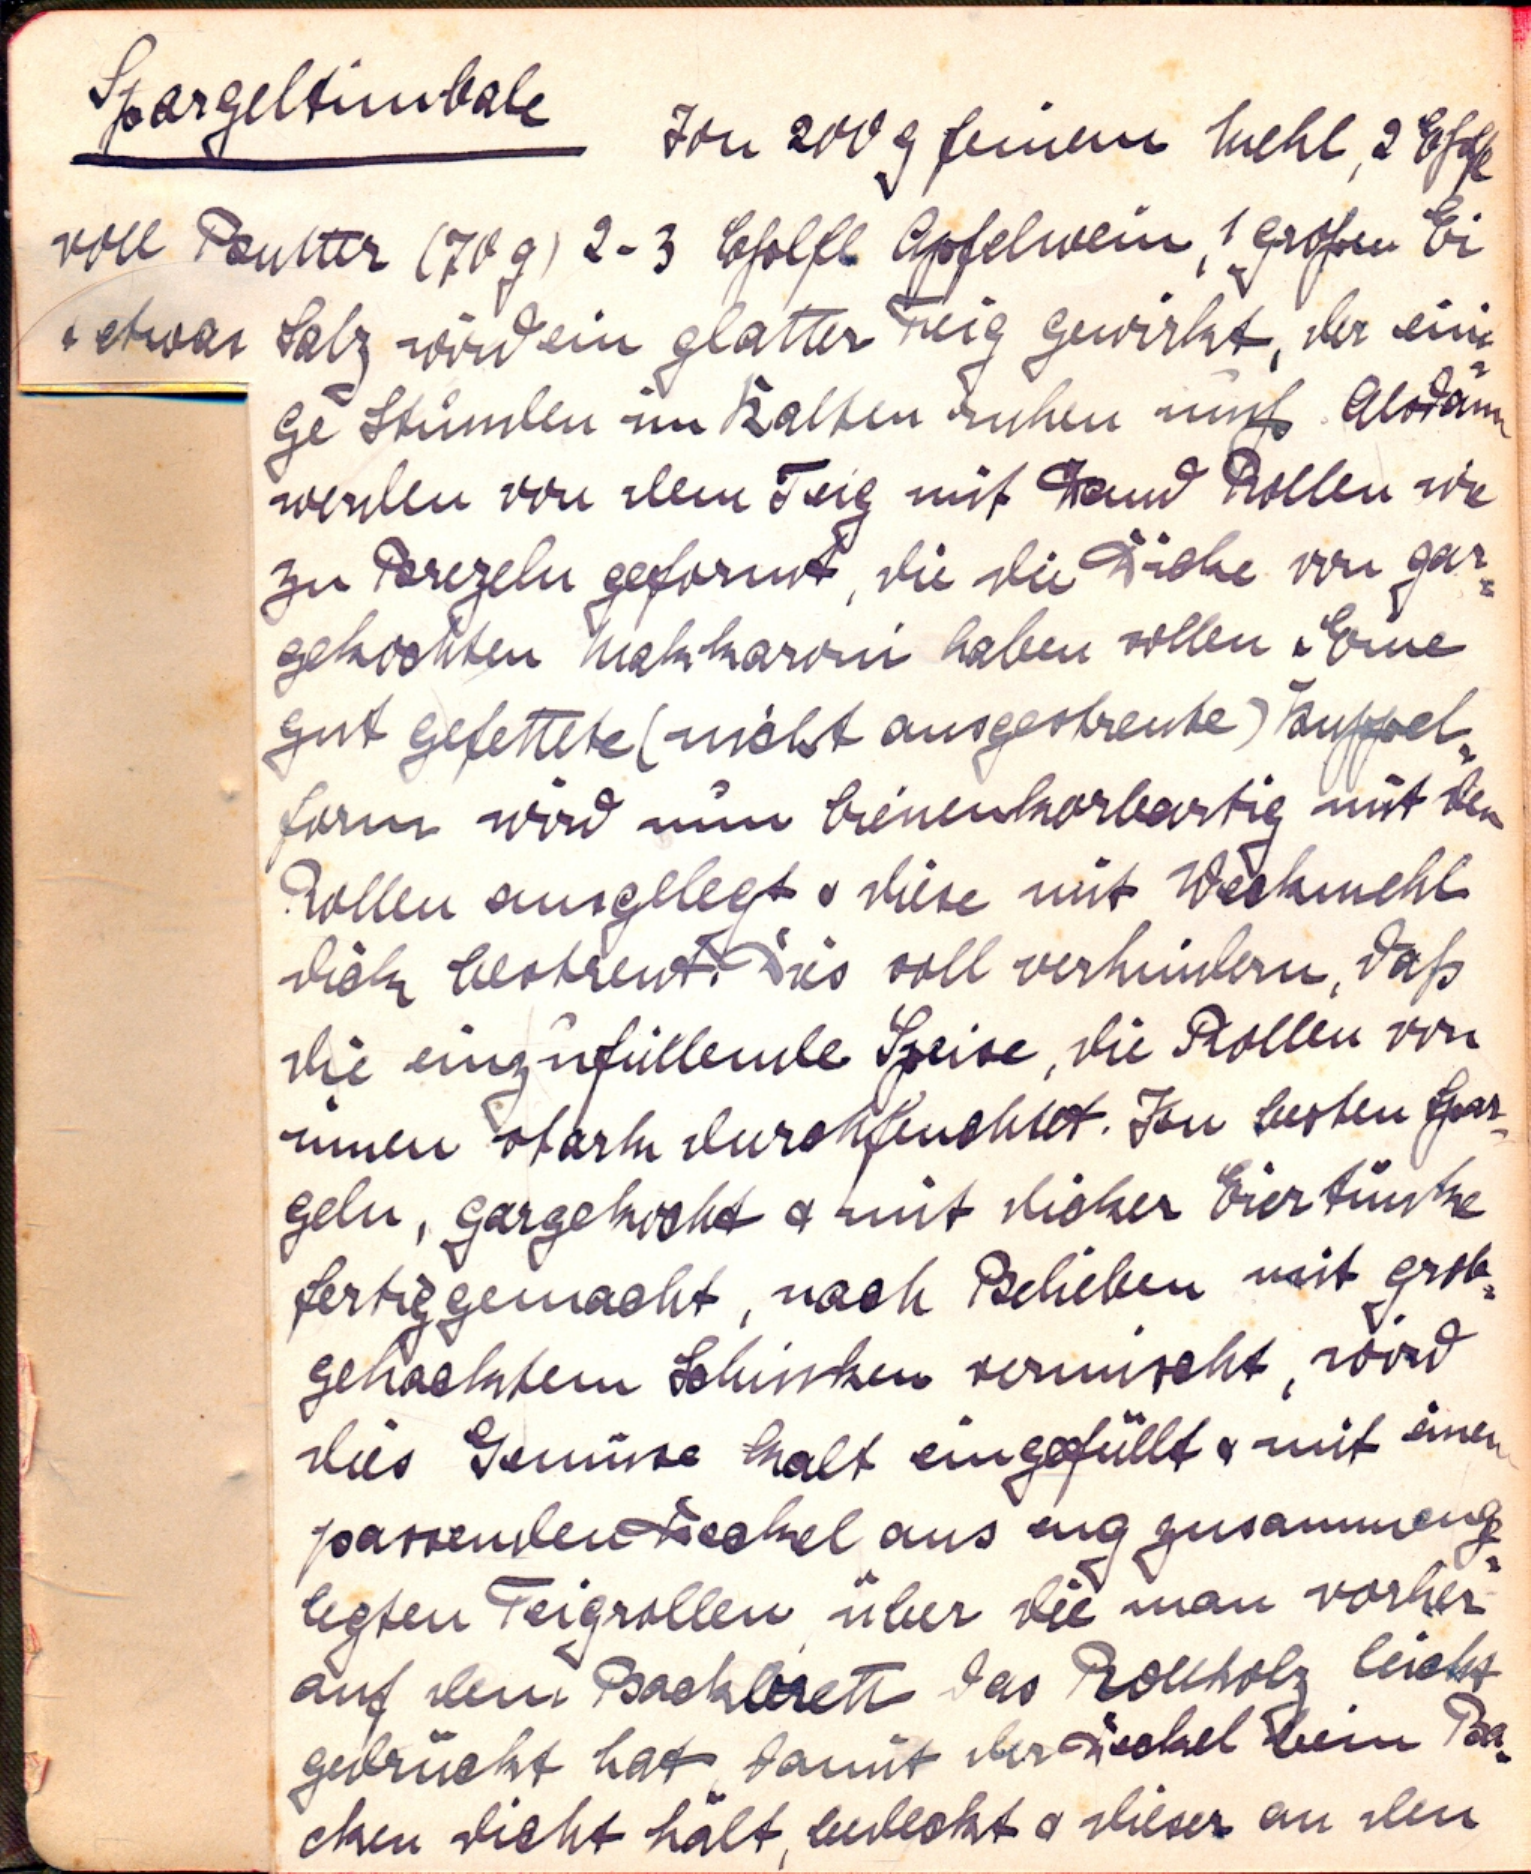 Spargeltimbale
Von 200 g feinem Mehl, 2 Eßlfl
voll Butter (70 g) 2-3 Eßlfl Apfelwein, 1 großen Ei
& etwas Salz wird ein glatter Teig gewirkt, der eini-
ge Stunden im Kalten ruhen muß. Alsdann
werden von dem Teig mit Hand Rollen wie
zu Brezeln geformt, die die Dicke von gar-
gekochten Makkaroni haben sollen. Eine
gut gefettete (nicht ausgestreute) Kuppel-
form wird nun bienenkorbartig mit den
Rollen ausgelegt & diese mit Weckmehl
dick bestreut. Dies soll verhindern, daß
die einzufüllende Speise, die Rollen von
innen stark durchfeuchtet. Von besten Spar-
geln, gargekocht & mit dicker Eiertunke
fertiggemacht, nach Belieben mit grob-
gehacktem Schinken vermischt, wird
dies Gemüse kalt eingefüllt & mit einen
passenden Deckel aus eng zusammenge-
legten Teigrollen, über die man vorher
auf dem Backbrett das Rollholz leicht
gedrückt hat, damit der Deckel beim Ba-
cken dicht hält, bedeckt & dieser an den